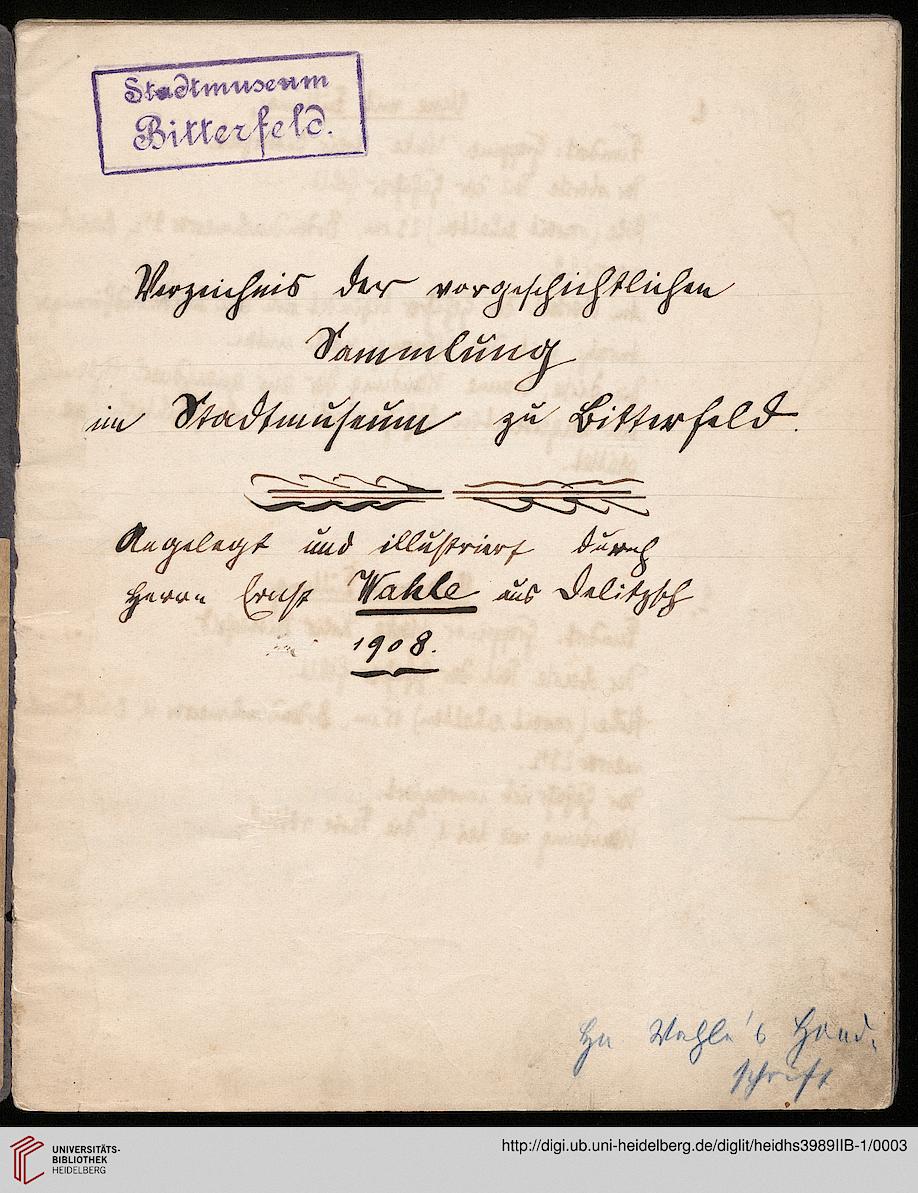 Stadtmuseum
Bitterfeld.
Verzeichnis der vorgeschichtlichen
Sammlung
im Stadtmuseum zu Bitterfeld.
Angelegt und illustriert durch
Herrn Ernst Wahle aus Delitzsch
1908.
Hn Wahle's Hand-
schrift
UNIVERSITÄTS-
BIBLIOTHEK
HEIDELBERG
http://digi.ub.uni-heidelberg.de/diglit/heidhs3989IIB-1/0003